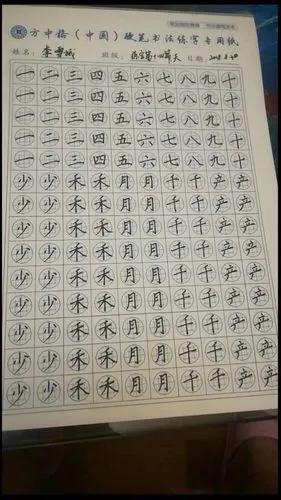 方中格（中国）硬笔书法练字专用纸
姓名： 李 班级： 第十四天 日期：
一二三四五六七八九十
一二三四五六七八九十
一二三四五六七八九十
一二三四五六七八九十
一二三四五六七八九十
少少禾禾月月千千产产
少少禾禾月月千千产产
少少禾禾月月千千产产
少少禾禾月月千千产产
少少禾禾月月千千产产
少少禾禾月月千千产产
少少禾禾月月千千产产
少少禾禾月月千千产产
少少禾禾月月千千产产